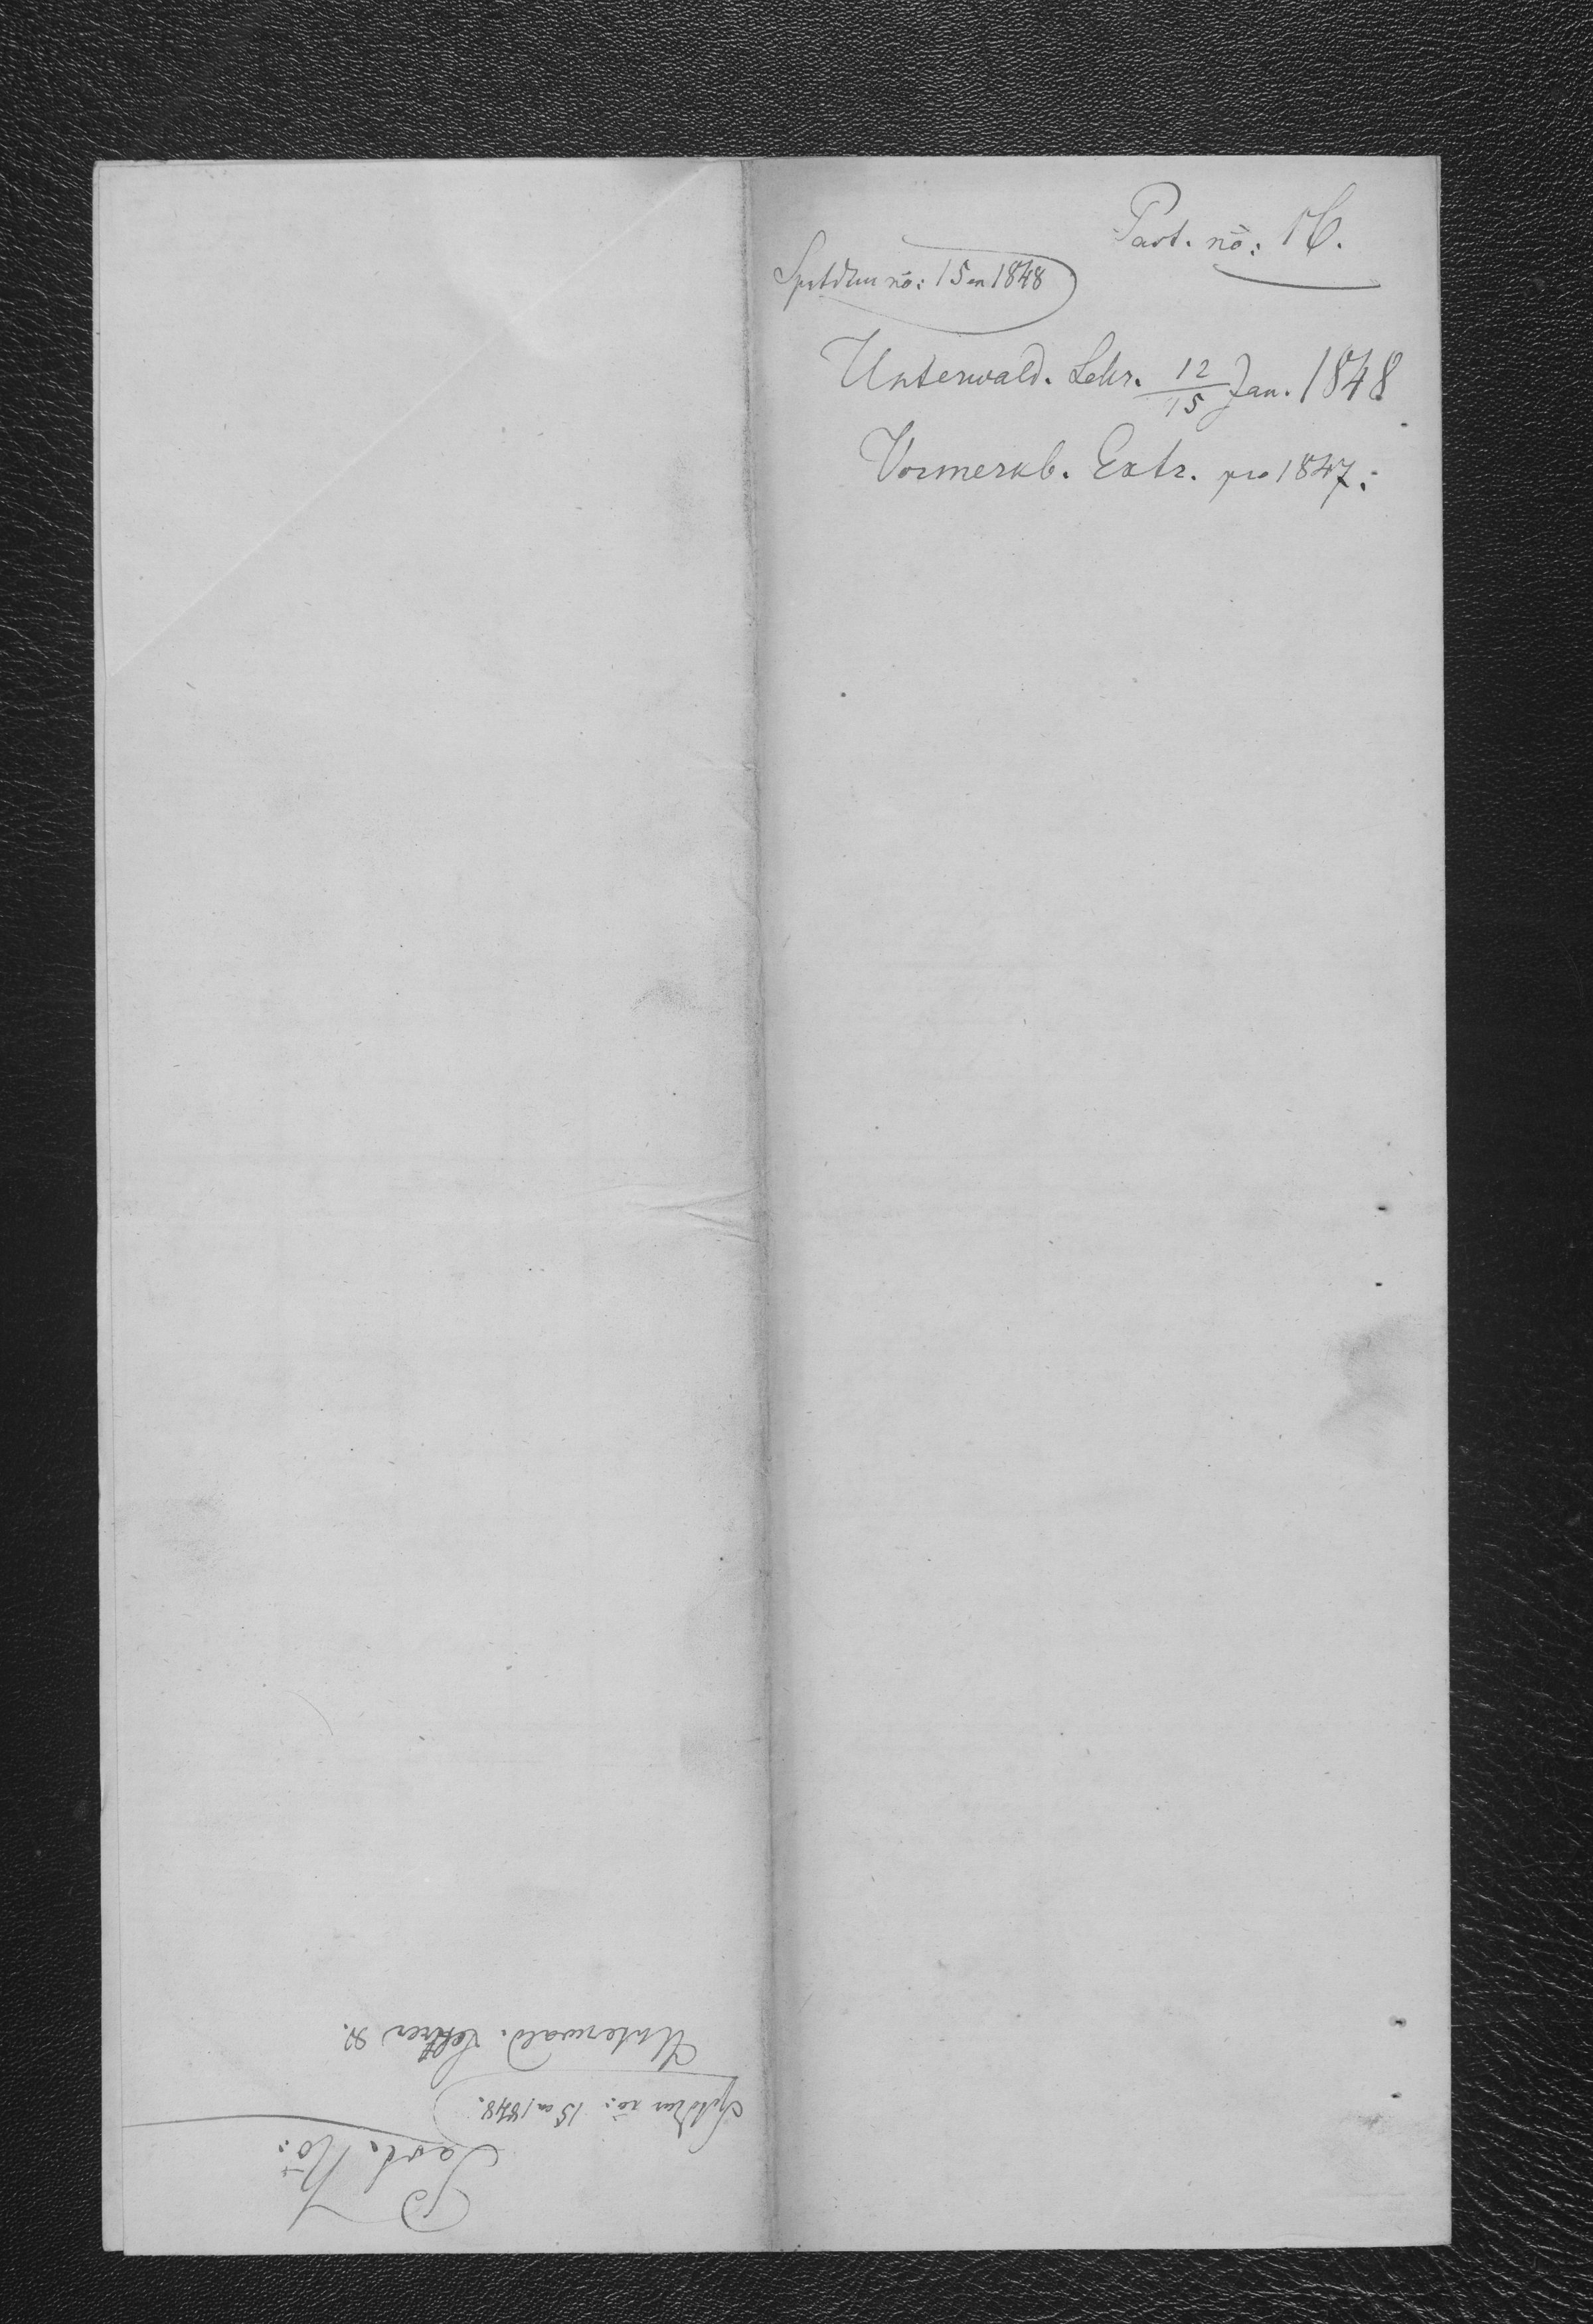 Past. nō: 16.
Spetdkm nō: 15 en 1848
Unterwald. Lehr. 12/15 Jan. 1848
Vormerkb. Extr. pro 1847.
Past. Nō:
nō: 15 en 1848.
Unterwald. Lehrer